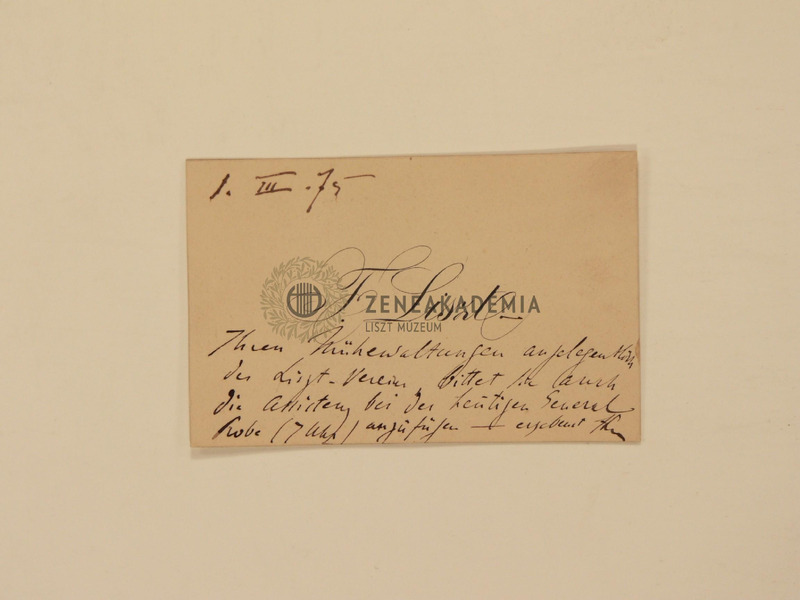 1. III. 75
F. Liszt
ZENEAKADÉMIA
LISZT MÚZEUM
Ihren Mühewaltungen angelegentlich
des Liszt-Vereins, bittet Sie auch
die Assistenz bei der heutigen General
Probe (7 Uhr) anzufügen — ergebenst